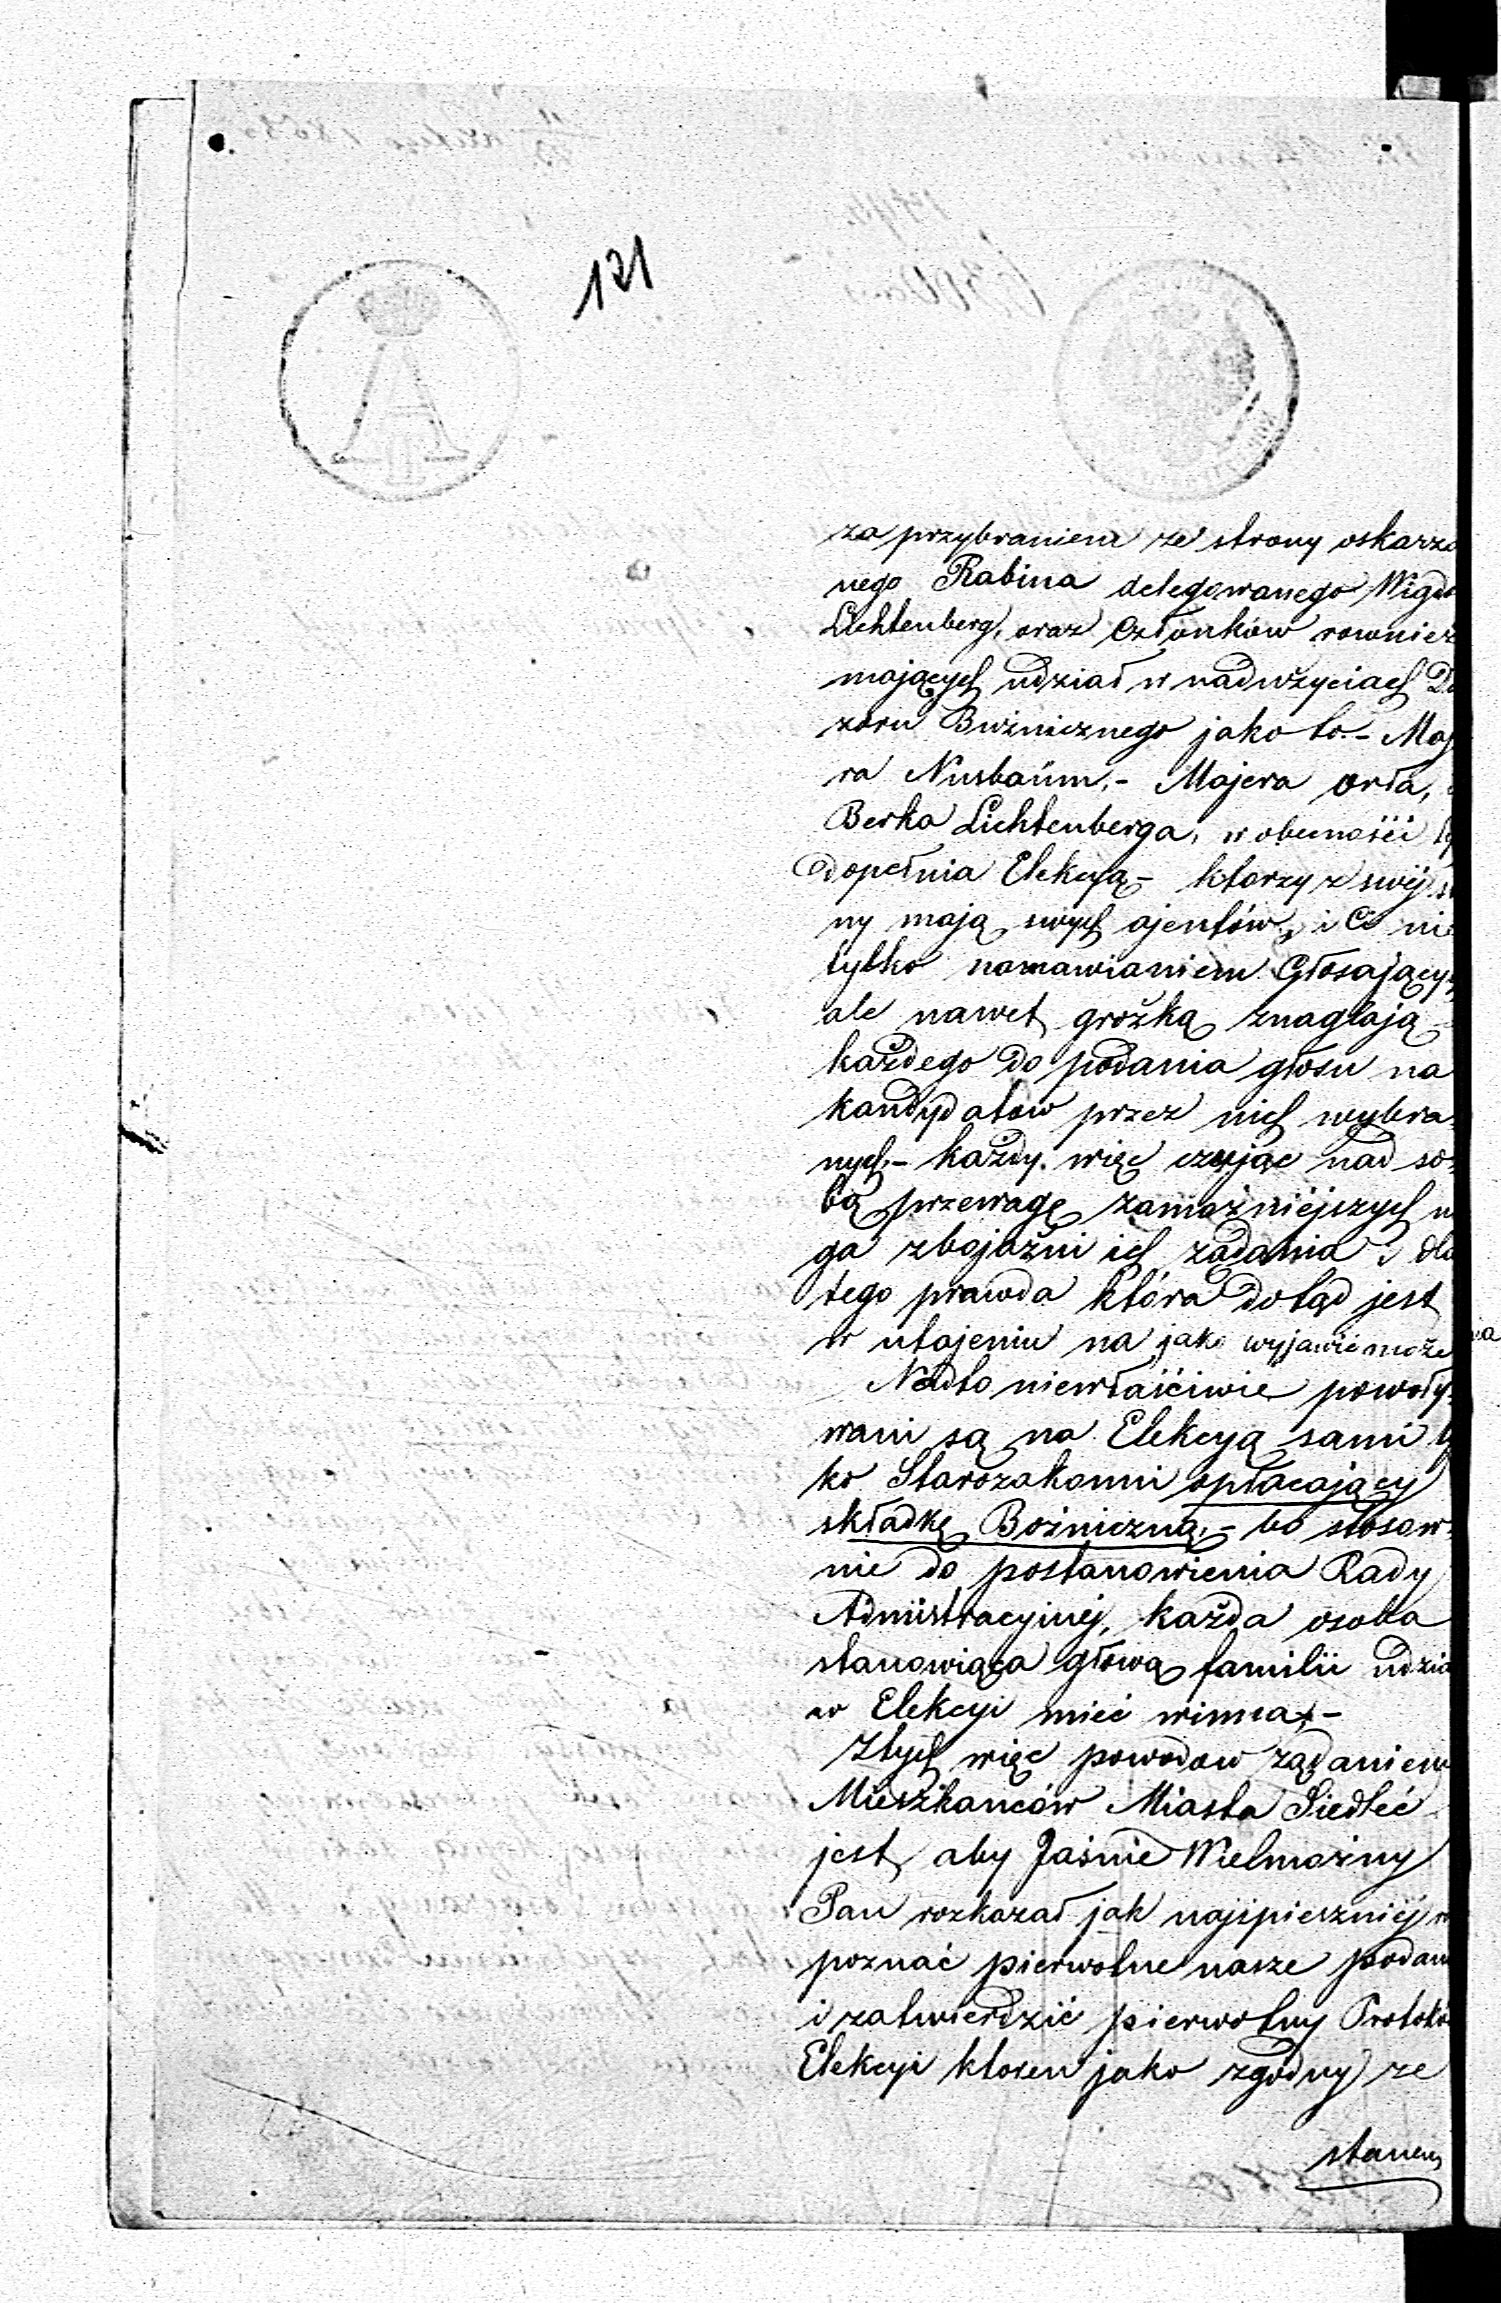 121
za przybraniem ze strony oskarzo
nego Rabina delegowanego Wigdo
Lichtenberg, oraz Członków rownież
mających udział w nadużyciach Do
zoru Bużnicznego jako to.- Maj
ra Nusbaum,- Majera orła,
Berka Lichtenberga, w obecności
dopełnia Elekcyą - ktorzy z swéj
ny mają swych ajentów, i Ci nie
tylko namawianiem Głosający
ale nawet groźką znaglają
każdego do podania głosu na
kandydatow przez nich wybra
nych,- każdy. więc czując nad so-
bą przewagę zamożniéjszych
ga zbojaźni ich żądania i dla
tego prawda która dotąd jest
w utajeniu na jak wyjawić może
Nadto niewłaściwie powoły-
wani są na Elekcyą sami ty
ko Starozakonni opłacający
składkę Bożniczną,- bo stosow-
nie do postanowienia Rady
Admiistracyjnéj, każda osoba
stanowiąca głową familii udzia
w Elekcyi mieć winna,-
Ztych więc powodow żądaniem
Mieszkanców Miasta Siedlec
jest, aby Jaśnie Wielmożny
Pan rozkazał jak najspieszniéj ro
poznać pierwotne nasze podan
i zatwierdzić pierwotny Protokó
Elekcyi ktoren jako zgodny ze
stanem